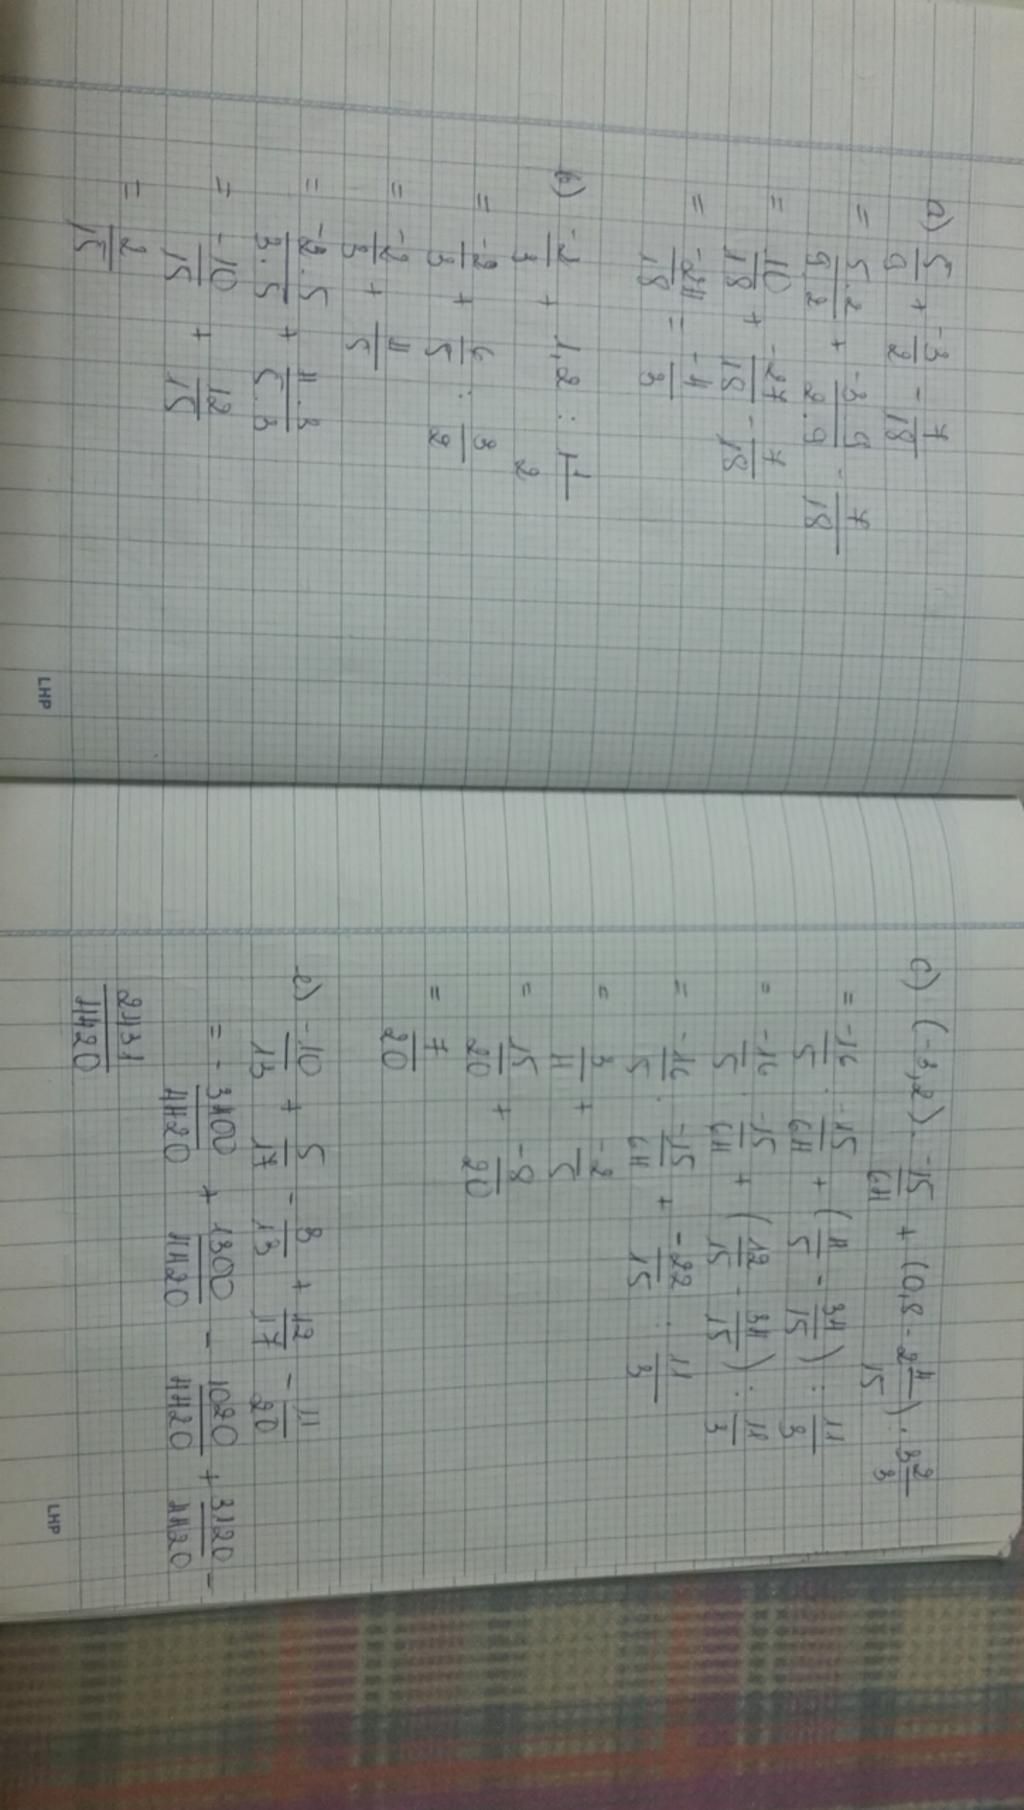 a) 5/9 + -3/2 - 7/18
= 5.2/9.2 + -3.9/2.9 - 7/18
= 10/18 + -27/18 - 7/18
= -24/18 = -4/3
b) -2/3 + 1,2 : 1 1/2
= -2/3 + 6/5 : 3/2
= -2/3 + 4/5
= -2.5/3.5 + 4.3/5.3
= -10/15 + 12/15
= 2/15
LHP
c) (-3,2) . -15/64 + (0,8 - 2 4/15) : 3 2/3
= -16/5 . -15/64 + (4/5 - 34/15) : 11/3
= -16/5 . -15/64 + (12/15 - 34/15) : 11/3
= -16/5 . -15/64 + -22/15 : 11/3
= 3/4 + -2/5
= 15/20 + -8/20
= 7/20
e) -10/13 + 5/17 - 3/13 + 12/17 - 11/20
= - 3400/4420 + 1300/4420 - 1020/4420 + 3120/4420 -
2431/4420
LHP